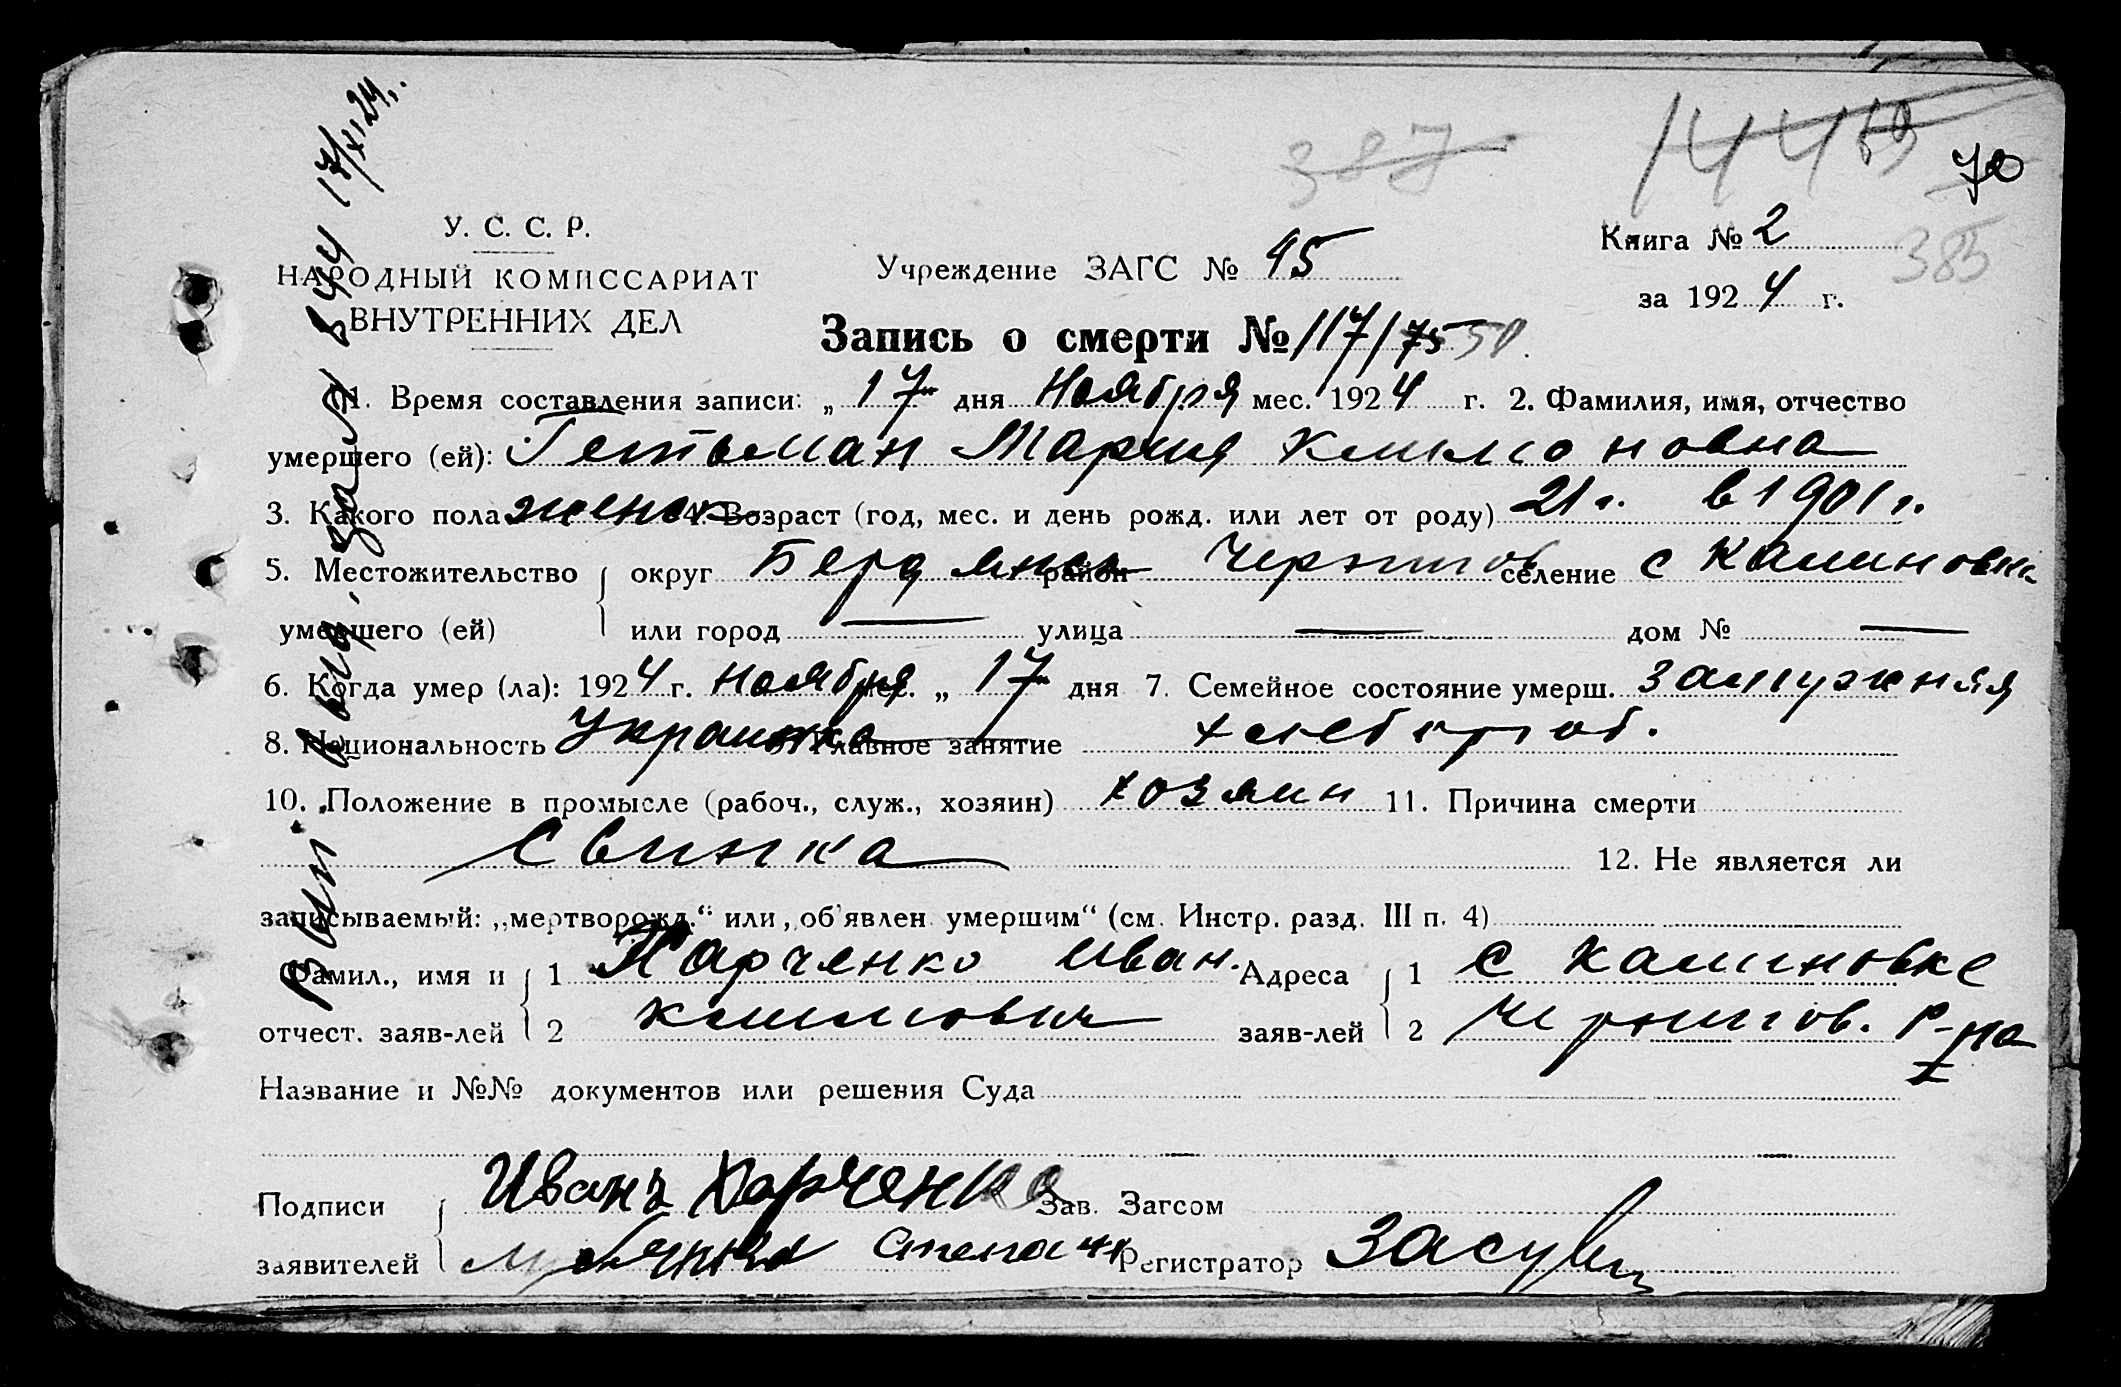 387
144
69
70
У. С. С. Р.
НАРОДНЫЙ КОМИССАРИАТ
ВНУТРЕННИХ ДЕЛ
Учреждение ЗАГС № 45
Книга № 2
385
за 1924 г.
Запись о смерти № 117/75 50
1. Время составления записи: „17" дня Ноября мес. 1924 г. 2. Фамилия, имя, отчество
умершего (ей): Гетьман Мария Климоновна
3. Какого пола женск 4. Возраст (год, мес. и день рожд. или лет от роду) 21 г. в 1901 г.
5. Местожительство умершего (ей) округ Бердянск район Чернигов селение с Калиновки
или город — улица — дом № —
6. Когда умер (ла): 1924 г. Ноября мес. „17" дня 7. Семейное состояние умерш. замужняя
8. Национальность Украинка Главное занятие хлебороб.
10. Положение в промысле (рабоч., служ., хозяин) хозяин 11. Причина смерти
Свинка 12. Не является ли
записываемый: „мертворожд." или „об'явлен умершим" (см. Инстр. разд. III п. 4)
Фамил., имя и отчест. заяв-лей 1 Харченко Иван. Адреса заяв-лей 1 с Калиновке
2 Климович 2 Чернигов. Р-на
Название и №№ документов или решения Суда
Подписи заявителей Иванъ Харченко Зав. Загсом
Степан Регистратор Засув
17/XI 24.